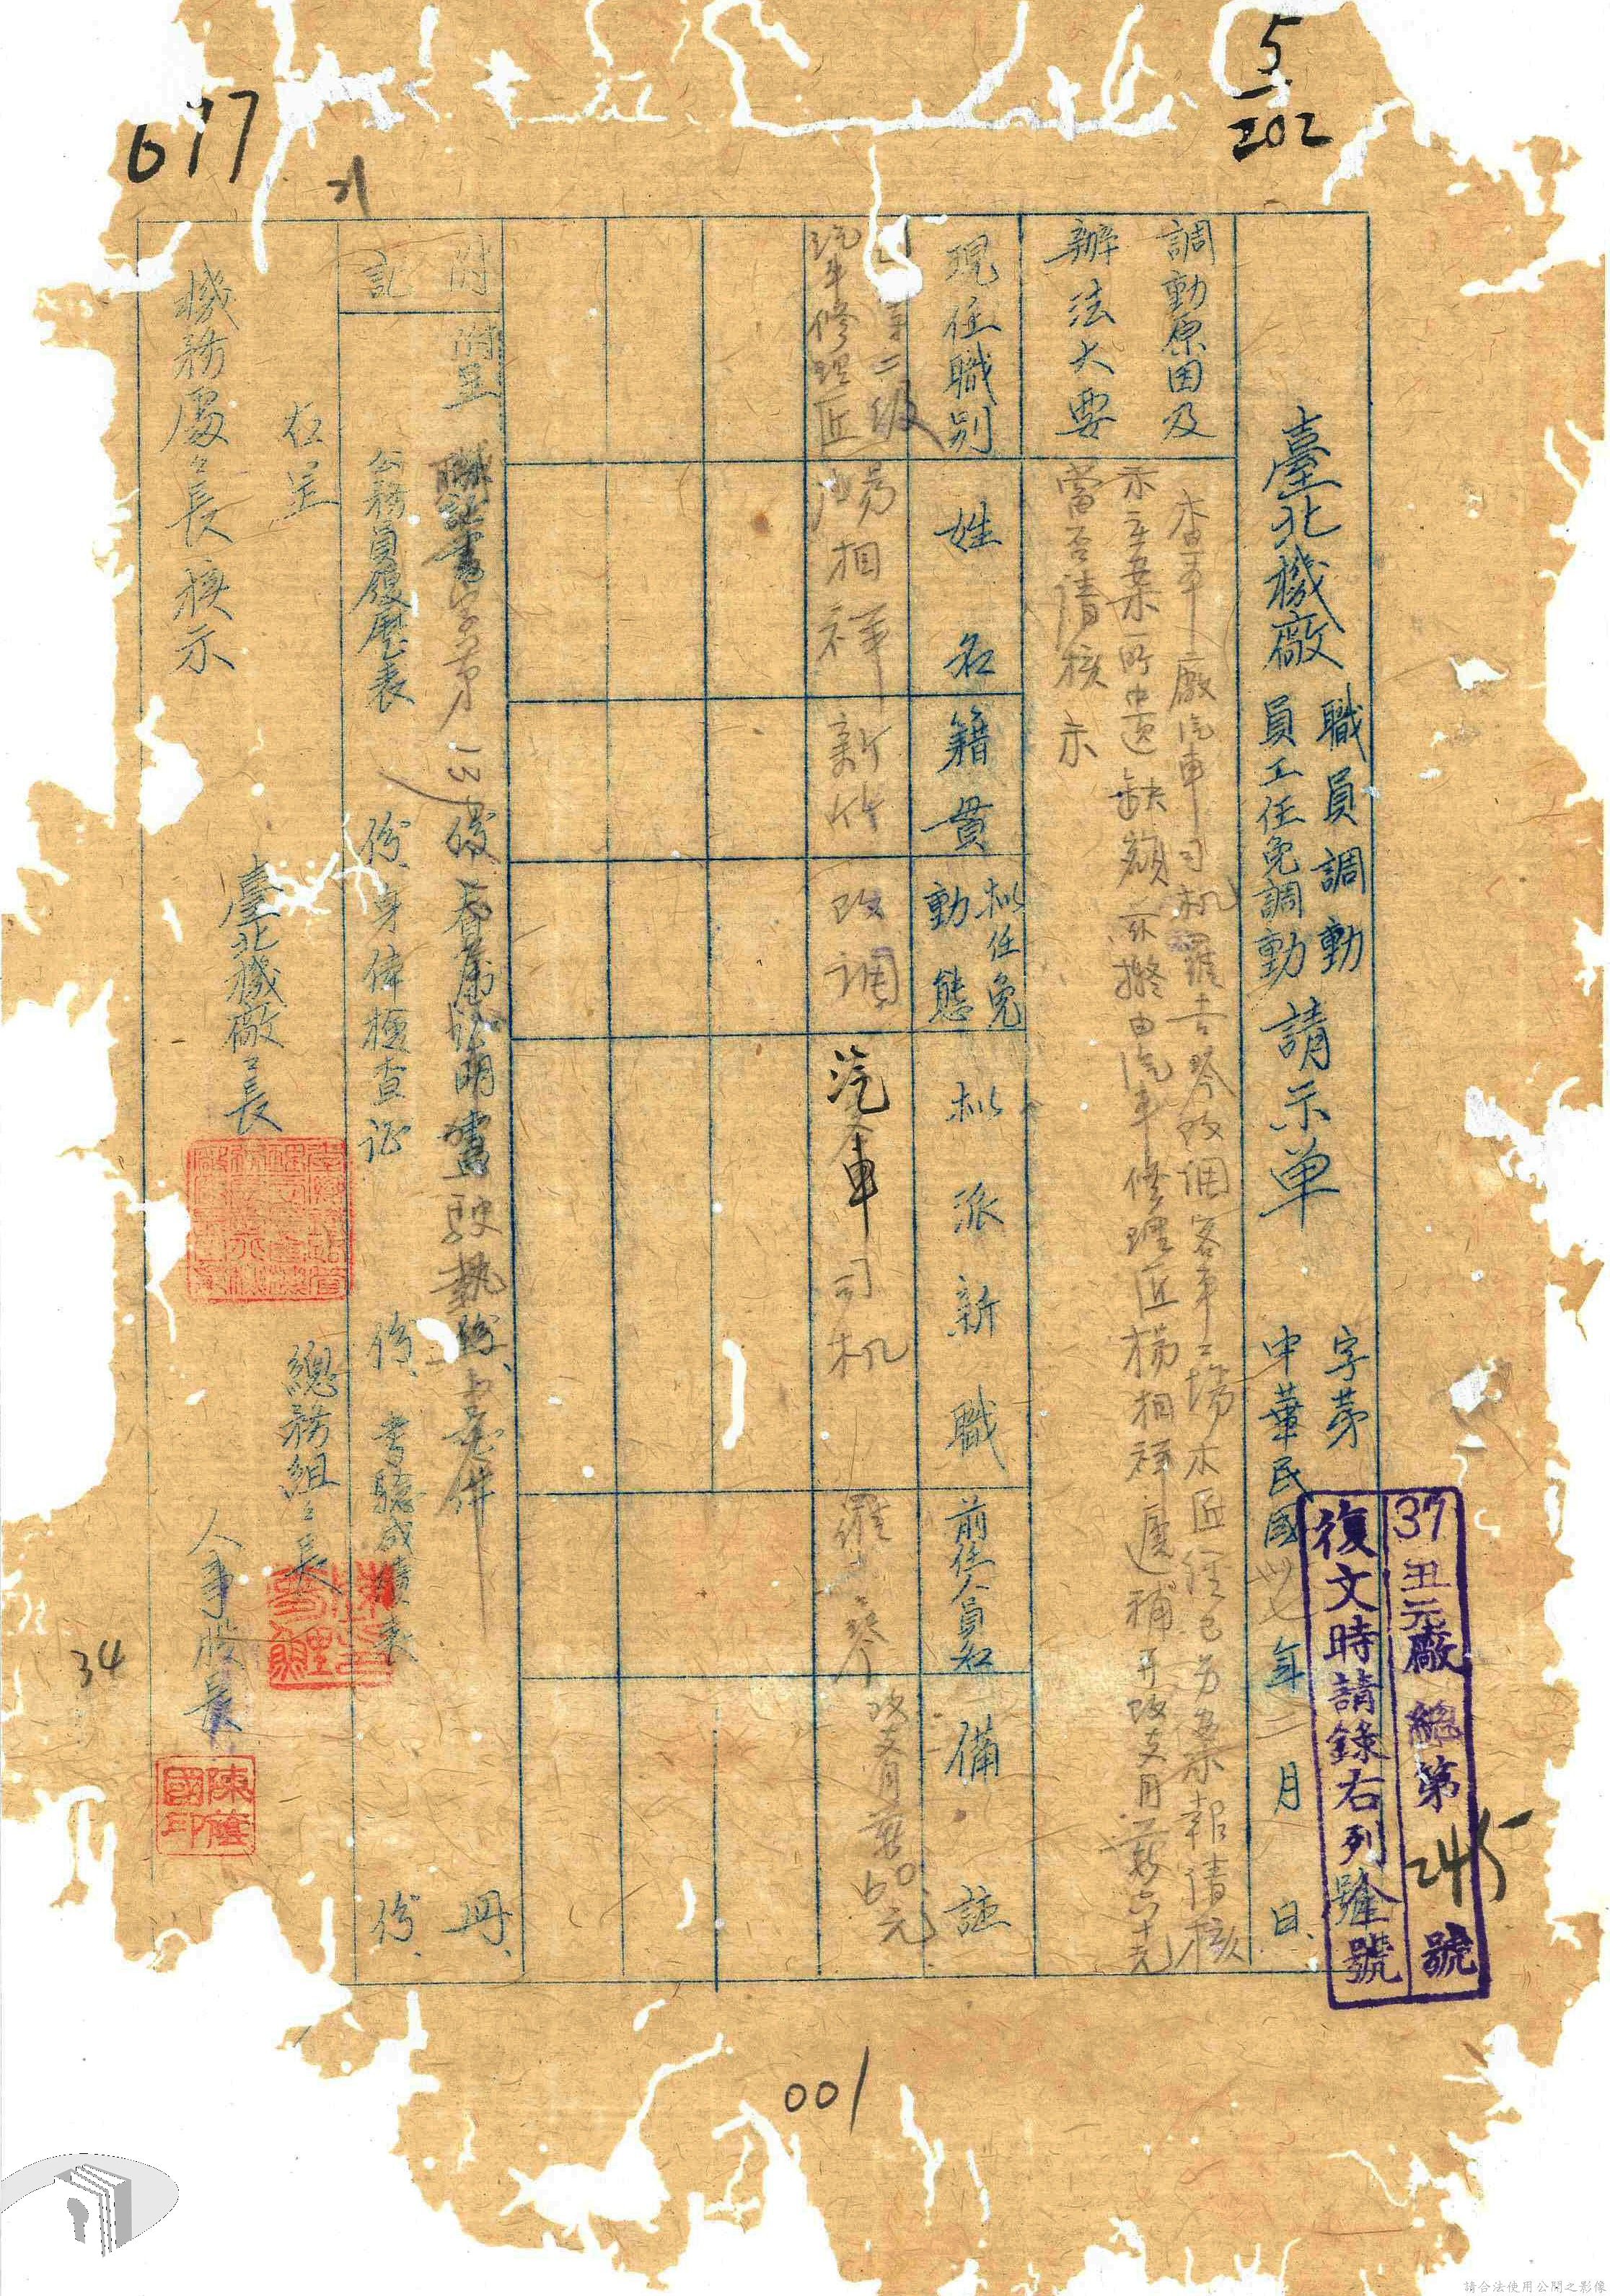 5
202
677
臺北機廠
職員調動
員工任免調動
請示单
字第
中華民國卅七年二月日
37丑元廠總第245號
復文時請錄右列號
調動原因及
辦法大要
查本廠汽車司机羅吉琴改調客車工場木匠經已另案報請核
示在案所遺缺額茲擬由汽車修理匠楊相祥遞補并改支月薪六十元
當否請核示
現任職別
姓名
籍貫
拟任免
動態
拟派新職
前任人員名
備註
二級
汽車修理匠
楊相祥
新竹
改調
汽車司机
羅吉琴
改支月薪60元
附記
附呈
字第13
駕駛執
件
冊
公務員履歷表
份、身体檢查证
份、考驗成績表
份、
右呈
機務處處長核示
臺北機廠厂長
總務組組長
人事股長
陳蔭國印
34
001
請合法使用公開之影像